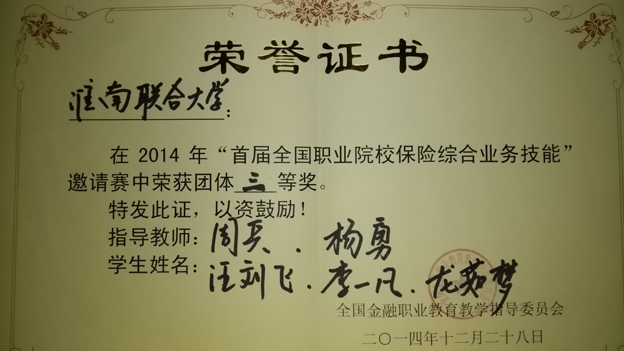 荣誉证书
淮南联合大学：
在 2014 年“首届全国职业院校保险综合业务技能”
邀请赛中荣获团体 三 等奖。
特发此证，以资鼓励！
指导教师：周兵、杨勇
学生姓名：汪刘飞、李一凡、龙茹梦
全国金融职业教育教学指导委员会
二〇一四年十二月二十八日